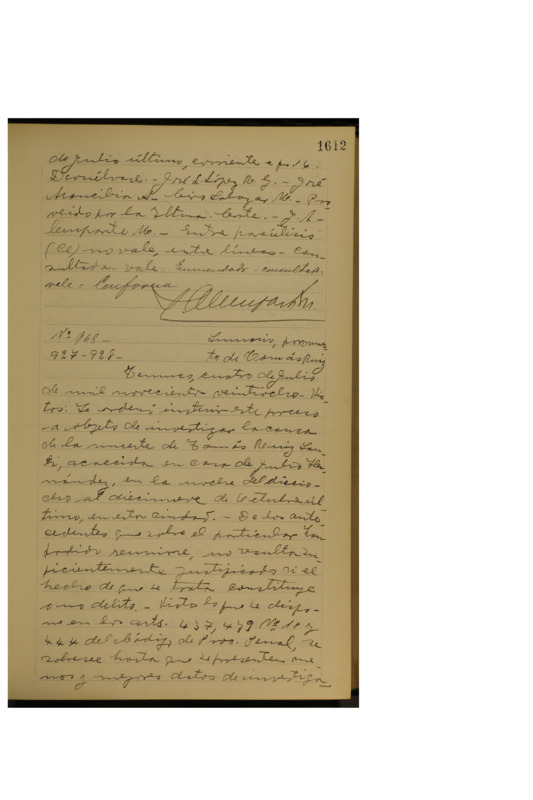 1612
de Julio último, corriente a fs. 14.
Devuélvase. - José L. López R. G. - José
Arancibia A - Ciro Salazar M. - Pro
veido por la Iltma. Corte. - J. A-
lemparte M. - Entre paréntisis
(Ce) no vale, entre líneas - con-
sultada - vale. Enmendado - consultada
vale - Conforme
Nº 968 - Sumario, por muer-
927-928 - te de Tomás Ruiz
Temuco, cuatro de Julio
de mil novecientos veintiocho - Vis-
tos: Se ordenó instruir este proceso
- a objeto de investigar la causa
de la muerte de Tomás Ruiz
acaecida en casa de Julio Her-
nández, en la noche del diecio-
cho al diecinueve de Octubre úl
timo, en esta ciudad. - De los ante-
cedentes que sobre el particular han
podido reunirse, no resulta su-
ficientemente justificado si el
hecho de que se trata constituye
o no delito. - Visto lo que se dispo-
ne en los arts. 437, 439 Nº 1º y
444 del Código de Proc. Penal, se
sobresee hasta que se presenten nue-
vos y mejores datos de investiga-